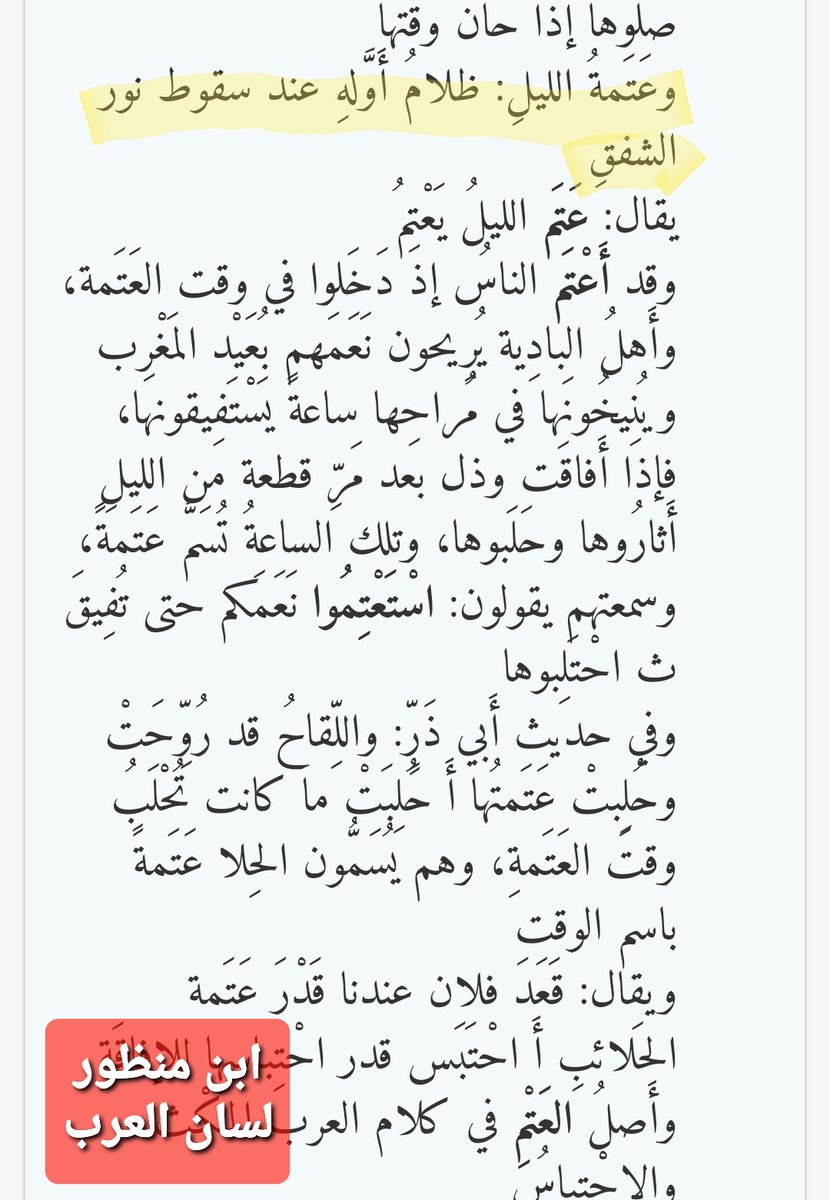 صلوها إذا حان وقتها
وعَتَمةُ الليلِ: ظلامُ أَوَّلهِ عند سقوط نور
الشفقِ
يقال: عَتَمَ الليلُ يَعْتِمُ
وقد أَعْتَمَ الناسُ إذ دَخَلوا في وقت العَتَمة،
وأَهلُ البادِية يُرِيحون نَعَمَهم بُعَيْد المَغْرِب
ويُنِيخُونَها في مُراحِها ساعةً يَسْتَفِيقونها،
فإذا أَفاقَت وذل بعد مَرِّ قطعة من الليل
أَثارُوها وحَلَبوها، وتلك الساعةُ تُسَمَّ عَتَمَةً،
وسمعتهم يقولون: اسْتَعْتِمُوا نَعَمَكم حتى تُفِيقَ
ث احْتَلِبوها
وفي حديث أَبي ذَرٍّ: واللِّقاحُ قد رُوِّحَتْ
وحُلِبتْ عَتَمتُها أَ حُلِبَتْ ما كانت تُحْلَبُ
وقتَ العَتَمةِ، وهم يُسَمُّون الحِلا عَتَمةً
باسم الوقت
ويقال: قَعَدَ فلان عندنا قَدْرَ عَتَمة
الحَلائبِ أَ احْتَبَس قدر احْتِباسها للإفاقَةِ
وأَصلُ العَتْمِ في كلام العرب المُكْث
والاحْتِباسُ
ابن منظور
لسان العرب